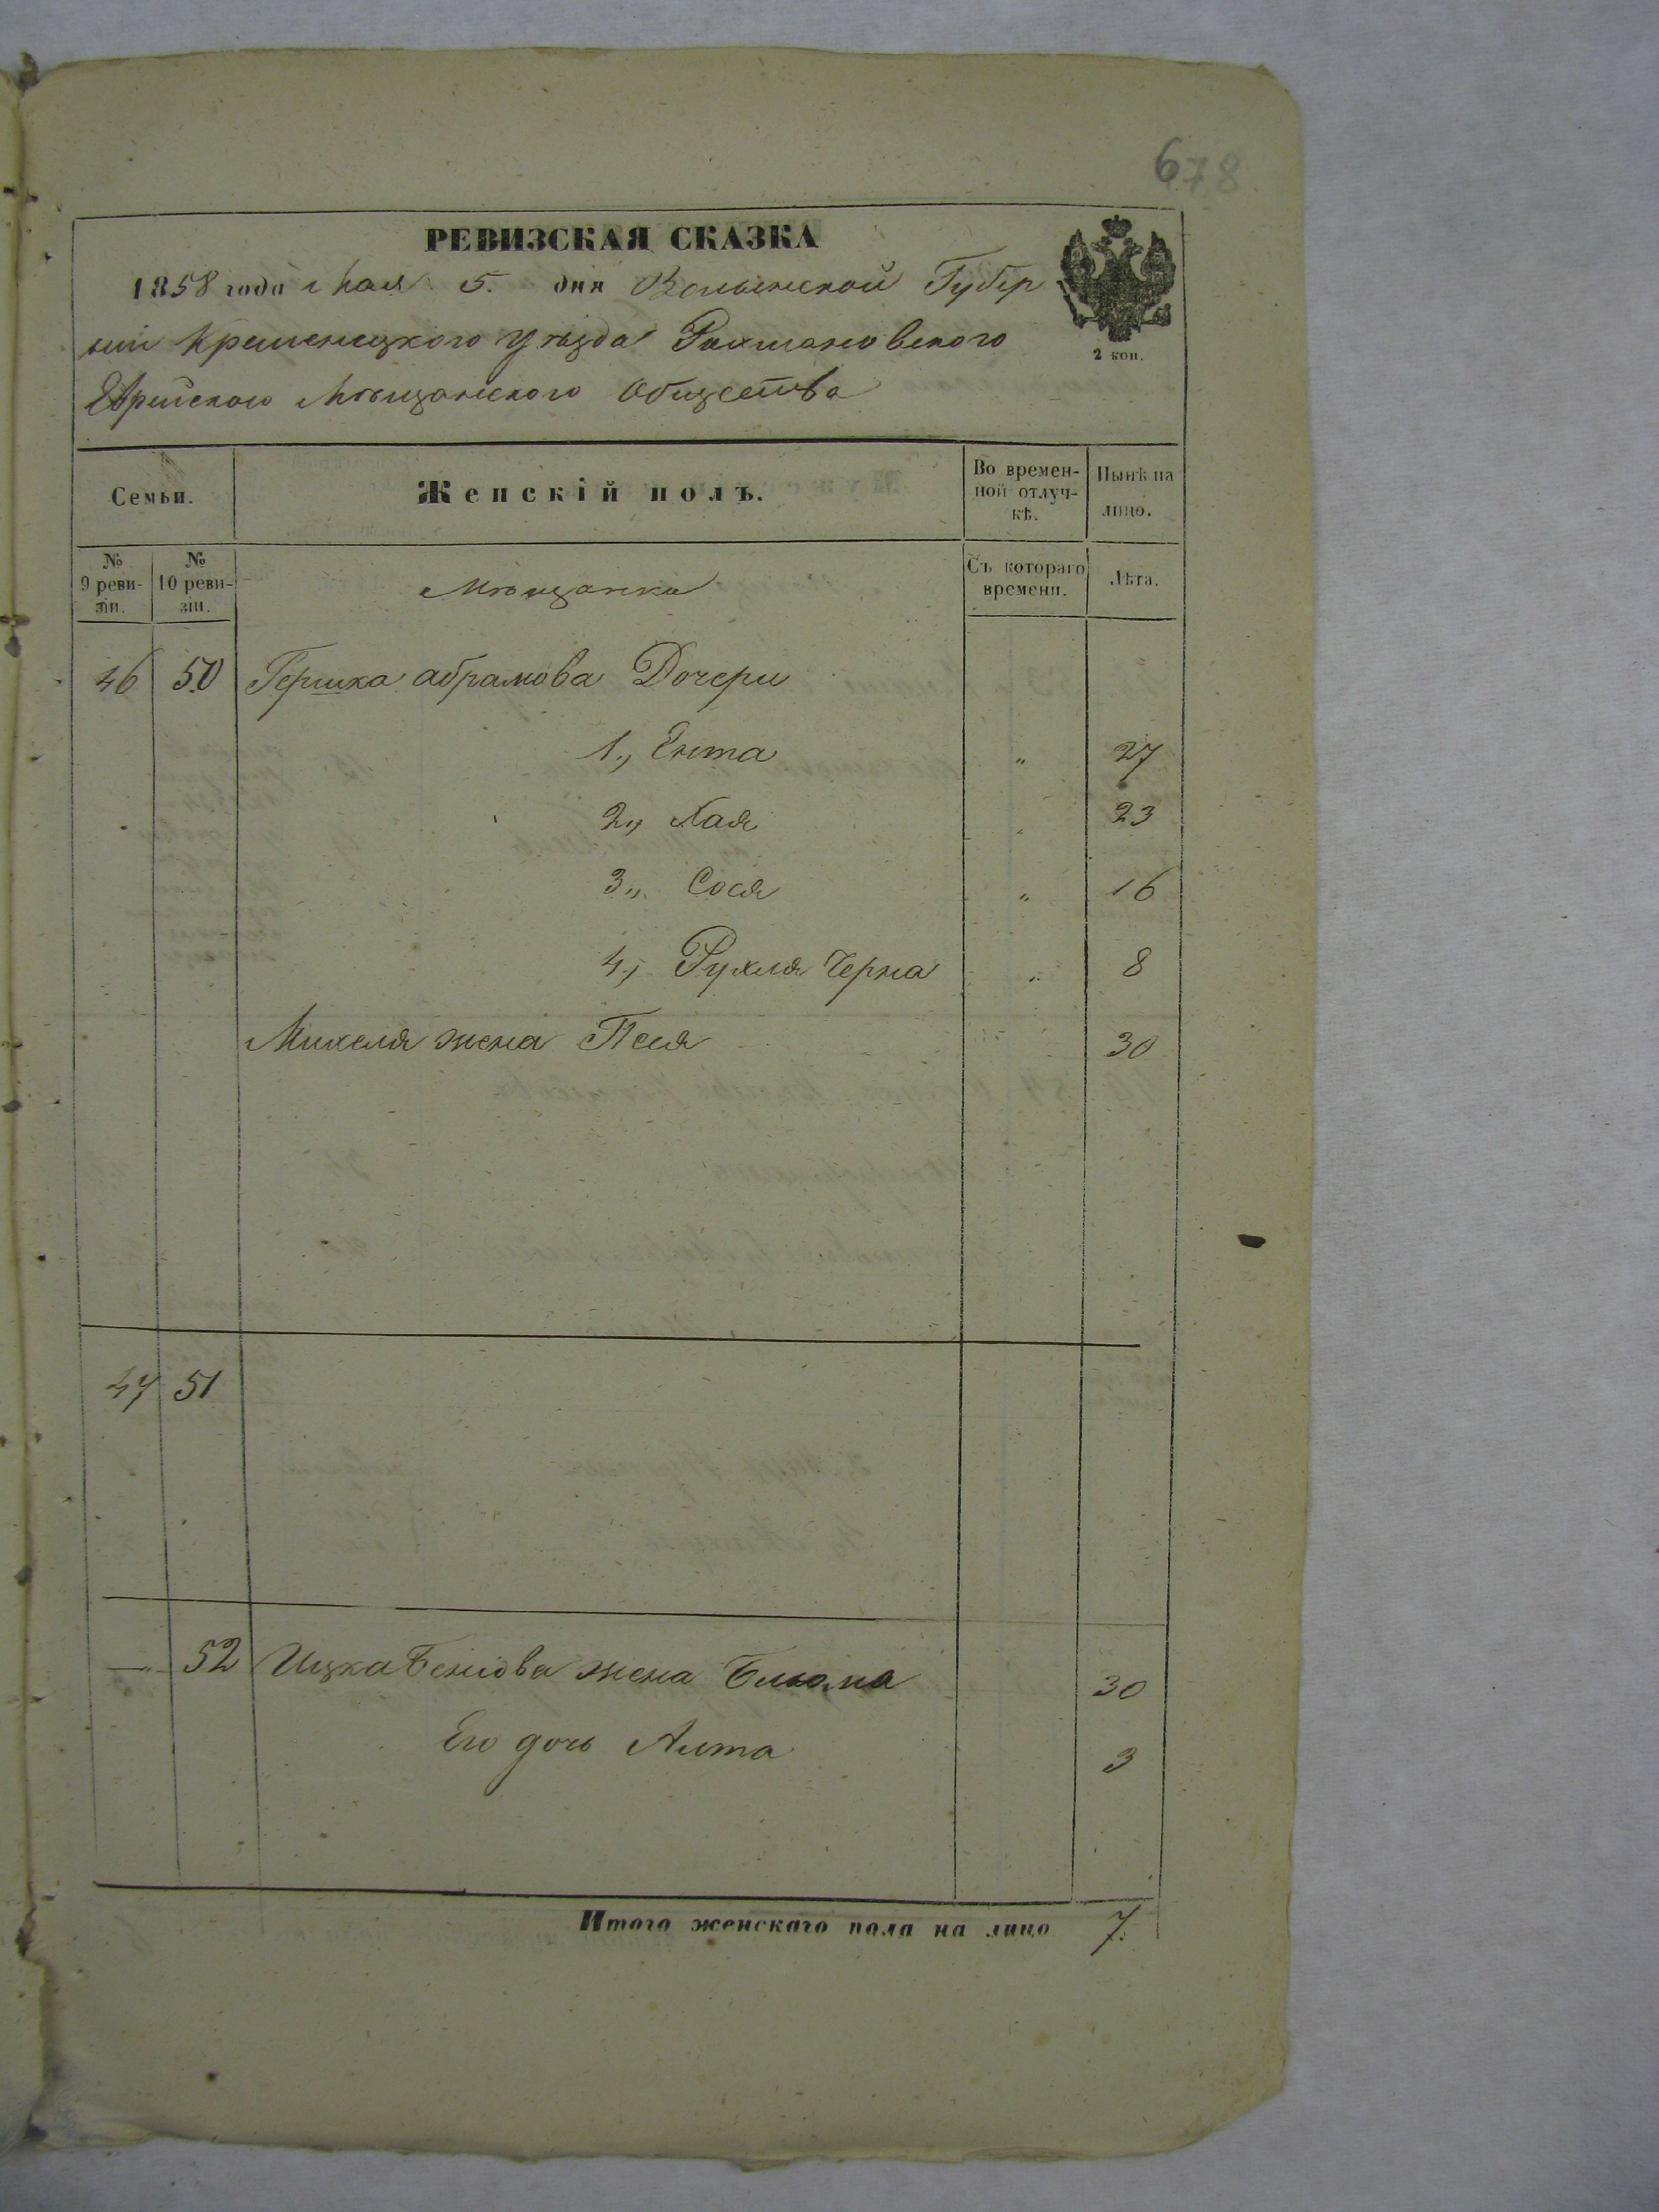 678
РЕВИЗСКАЯ СКАЗКА
1858 года Мая 5. дня Волынской Губер
ніи Кременецкого Уѣзда Рахмановского
Еврейского Мѣщанского Общества
2 коп.
Семьи. Женскій полъ. Во времен-
ной отлуч-
кѣ. Нынѣ на
лицо.
№
9 реви-
зіи. №
10 реви-
зіи. Мѣщанка Съ котораго
времени. Лѣта.
46 50 Гершка Абрамова Дочери
1., Ента " 27
2., Хая " 23
3., Сося " 16
4., Рухля Черна " 8
Михеля жена Песя 30
47 51
— 52 Ицка Бенiова жена Блюма 30
Его дочь Алта 3
Итого женскаго пола на лицо 7.